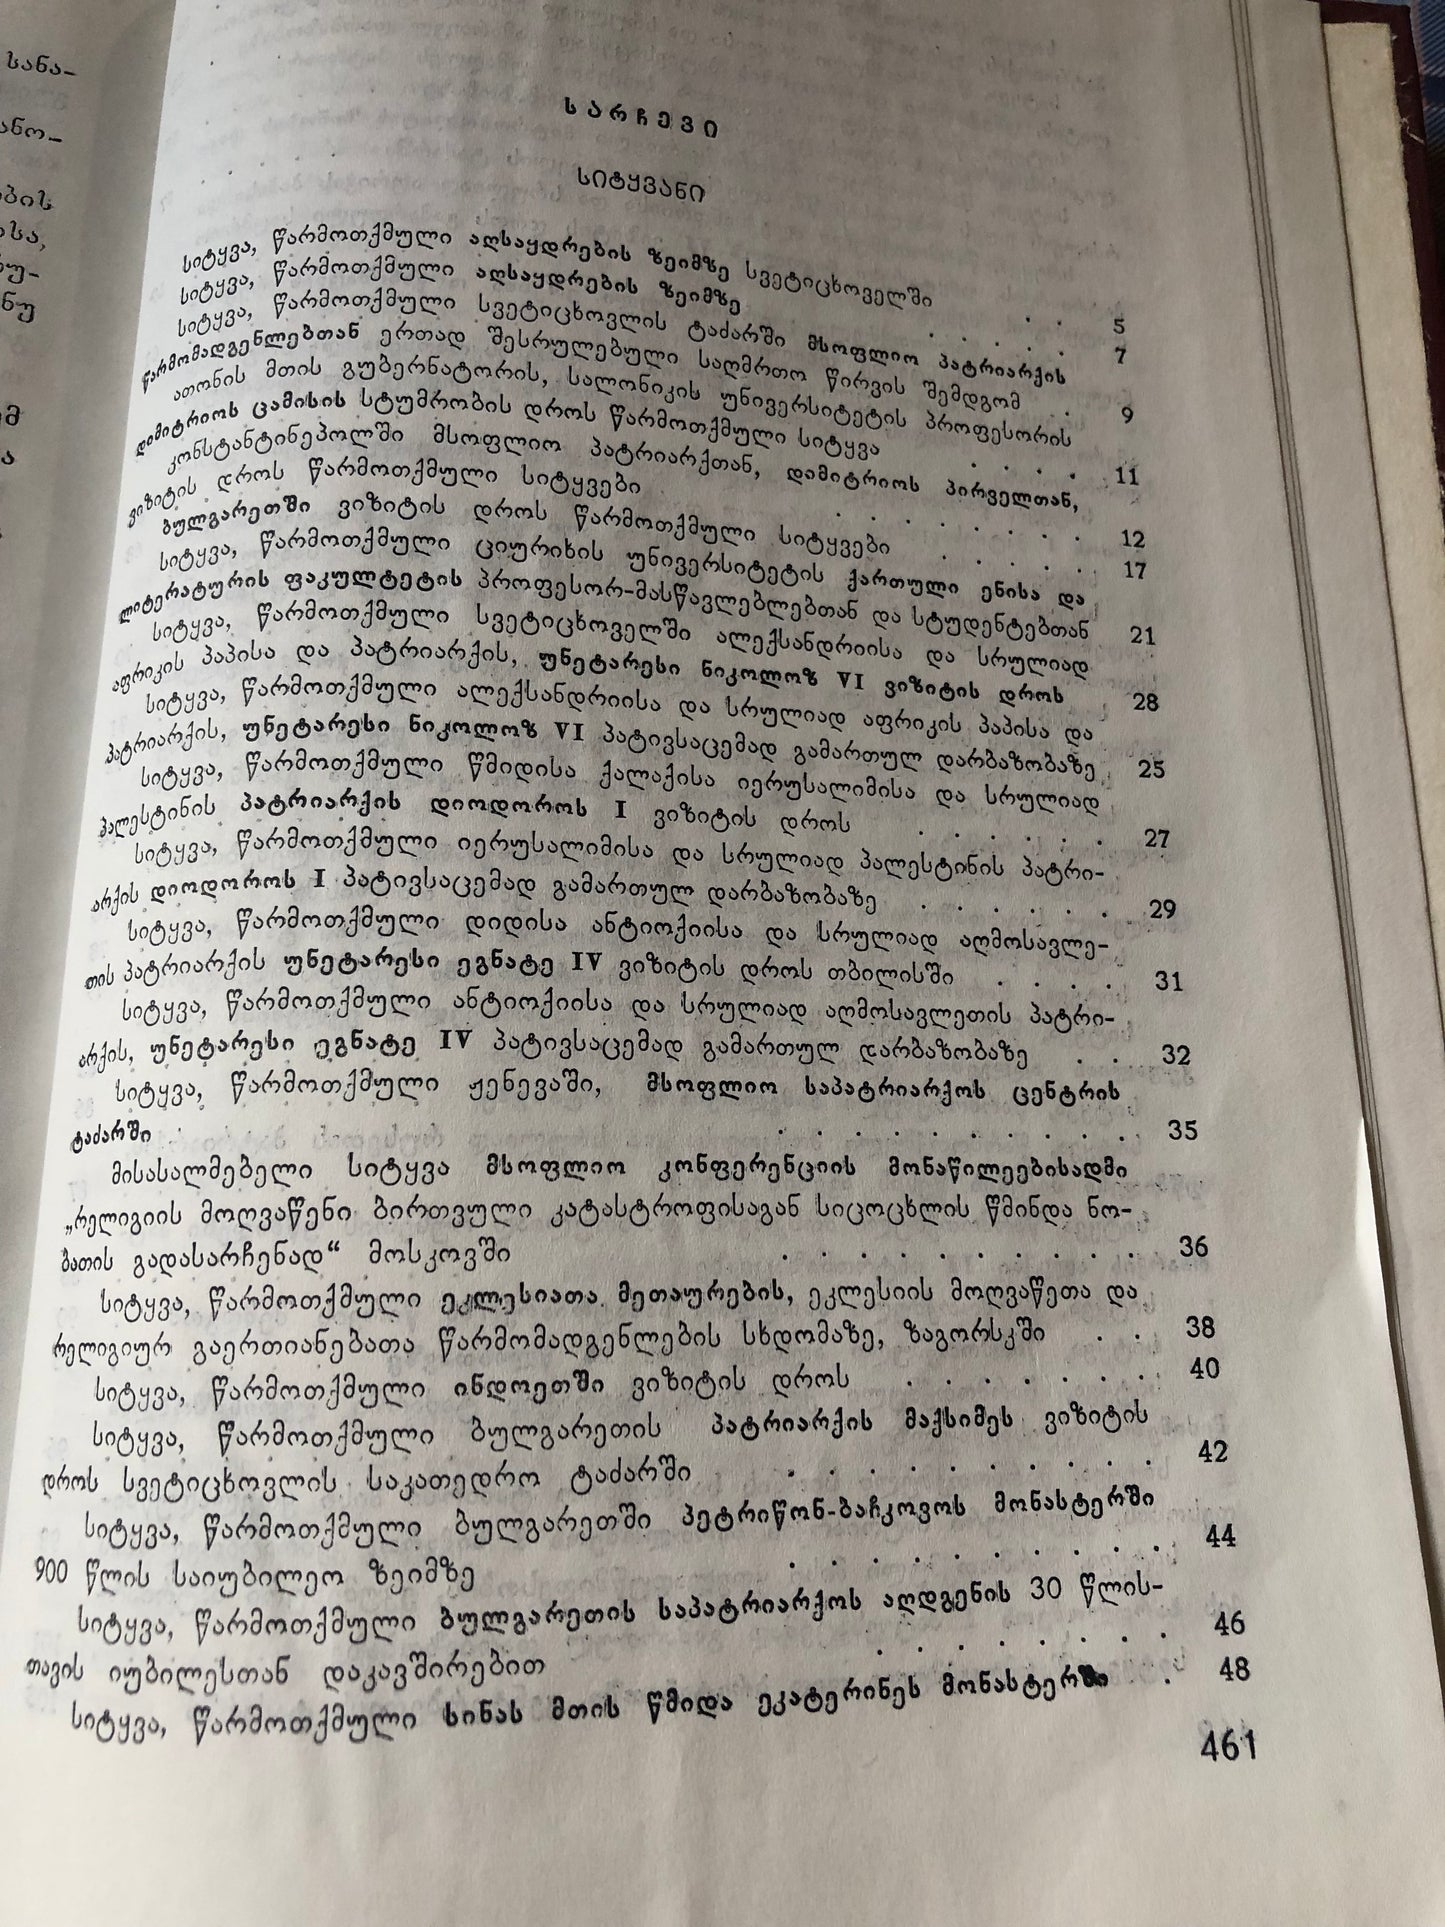 სანა-
ანო-
ბის
სარჩევი
სიტყვანი
სიტყვა, წარმოთქმული აღსაყდრების ზეიმზე სვეტიცხოველში . . 5
სიტყვა, წარმოთქმული აღსაყდრების ზეიმზე . . . . . 7
სიტყვა, წარმოთქმული სვეტიცხოვლის ტაძარში მსოფლიო პატრიარქის
წარმომადგენლებთან ერთად შესრულებული საღმრთო წირვის შემდგომ . 9
ათონის მთის გუბერნატორის, სალონიკის უნივერსიტეტის პროფესორის
დიმიტრიოს ცამისის სტუმრობის დროს წარმოთქმული სიტყვა . . . . 11
კონსტანტინეპოლში მსოფლიო პატრიარქთან, დიმიტრიოს პირველთან,
ვიზიტის დროს წარმოთქმული სიტყვები . . . . . . . 12
ბულგარეთში ვიზიტის დროს წარმოთქმული სიტყვები . . . . . 17
სიტყვა, წარმოთქმული ციურიხის უნივერსიტეტის ქართული ენისა და
ლიტერატურის ფაკულტეტის პროფესორ-მასწავლებლებთან და სტუდენტებთან 21
სიტყვა, წარმოთქმული სვეტიცხოველში ალექსანდრიისა და სრულიად
აფრიკის პაპისა და პატრიარქის, უნეტარესი ნიკოლოზ VI ვიზიტის დროს 28
სიტყვა, წარმოთქმული ალექსანდრიისა და სრულიად აფრიკის პაპისა და
პატრიარქის, უნეტარესი ნიკოლოზ VI პატივსაცემად გამართულ დარბაზობაზე 25
სიტყვა, წარმოთქმული წმიდისა ქალაქისა იერუსალიმისა და სრულიად
პალესტინის პატრიარქის დიოდოროს I ვიზიტის დროს . . . . . . 27
სიტყვა, წარმოთქმული იერუსალიმისა და სრულიად პალესტინის პატრი-
არქის დიოდოროს I პატივსაცემად გამართულ დარბაზობაზე . . . . . . 29
სიტყვა, წარმოთქმული დიდისა ანტიოქიისა და სრულიად აღმოსავლე-
თის პატრიარქის უნეტარესი ეგნატე IV ვიზიტის დროს თბილისში . . . . 31
სიტყვა, წარმოთქმული ანტიოქიისა და სრულიად აღმოსავლეთის პატრი-
არქის, უნეტარესი ეგნატე IV პატივსაცემად გამართულ დარბაზობაზე . . 32
სიტყვა, წარმოთქმული ჟენევაში, მსოფლიო საპატრიარქოს ცენტრის
ტაძარში . . . . . . . . . . 35
მისასალმებელი სიტყვა მსოფლიო კონფერენციის მონაწილეებისადმი
„რელიგიის მოღვაწენი ბირთვული კატასტროფისაგან სიცოცხლის წმინდა ნო-
ბათის გადასარჩენად“ მოსკოვში . . . . . . . . . . 36
სიტყვა, წარმოთქმული ეკლესიათა მეთაურების, ეკლესიის მოღვაწეთა და
რელიგიურ გაერთიანებათა წარმომადგენლების სხდომაზე, ზაგორსკში . . 38
სიტყვა, წარმოთქმული ინდოეთში ვიზიტის დროს . . . . . . . 40
სიტყვა, წარმოთქმული ბულგარეთის პატრიარქის მაქსიმეს ვიზიტის
დროს სვეტიცხოვლის საკათედრო ტაძარში . . . . . . . . . . 42
სიტყვა, წარმოთქმული ბულგარეთში პეტრიწონ-ბაჩკოვოს მონასტერში
900 წლის საიუბილეო ზეიმზე . . . . . . . . . . 44
სიტყვა, წარმოთქმული ბულგარეთის საპატრიარქოს აღდგენის 30 წლის-
თავის იუბილესთან დაკავშირებით . . . . . . . . 46
სიტყვა, წარმოთქმული სინას მთის წმიდა ეკატერინეს მონასტერში . 48
461